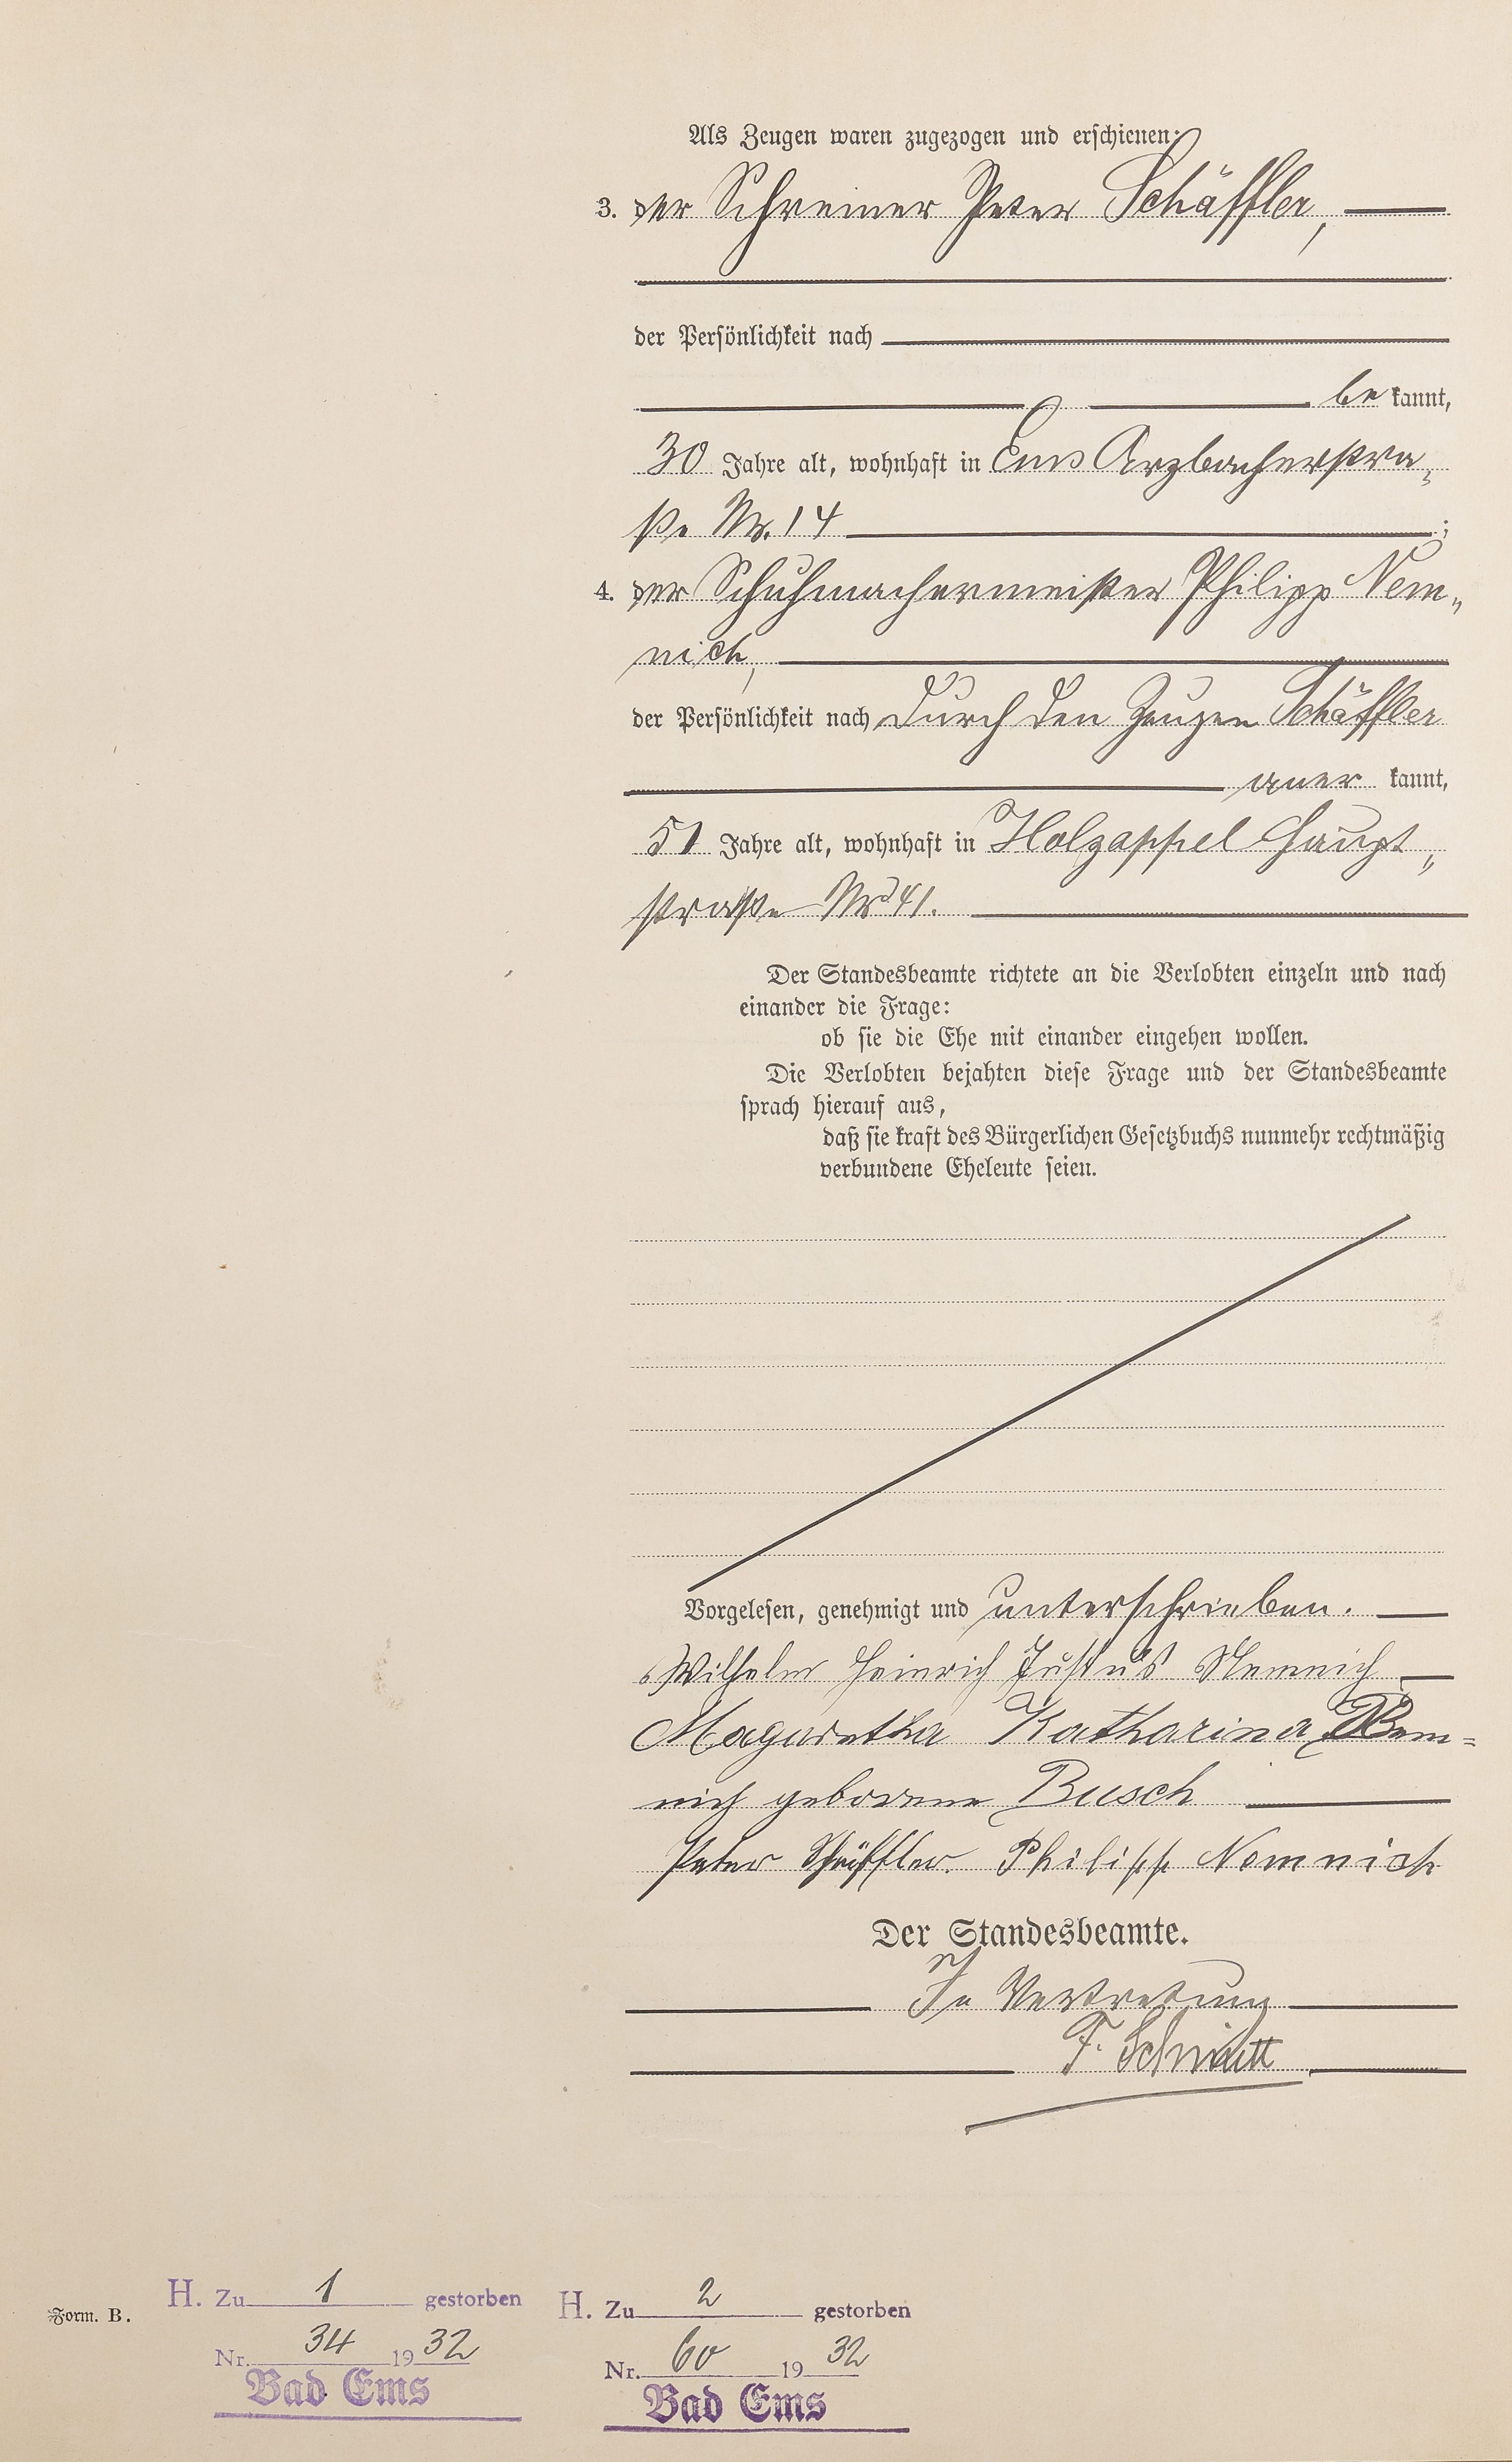 Als Zeugen waren zugezogen und erschienen:
3. der Schreiner Peter Schäffler,
der Persönlichkeit nach
be kannt,
30 Jahre alt, wohnhaft in Ems Arzbacherstra„
ße Nr. 14 ;
4. der Schuhmachermeister Philipp Nem„
nich,
der Persönlichkeit nach durch den Zeugen Schäffler
aner kannt,
51 Jahre alt, wohnhaft in Holzappel Haupt„
straße Nr 41.
Der Standesbeamte richtete an die Verlobten einzeln und nach
einander die Frage:
ob sie die Ehe mit einander eingehen wollen.
Die Verlobten bejahten diese Frage und der Standesbeamte
sprach hierauf aus,
daß sie kraft des Bürgerlichen Gesetzbuchs nunmehr rechtmäßig
verbundene Eheleute seien.
Vorgelesen, genehmigt und unterschrieben.
Wilhelm Heinrich Justus Nemnich
Magaretha Katharina Nem=
nich geborene Busch
Peter Schäffler. Philipp Nemnich
Der Standesbeamte.
In Vertretung
F. Schmitt
Form. B.
H. Zu 1 gestorben
Nr. 34 1932
Bad Ems
H. Zu 2 gestorben
Nr. 60 1932
Bad Ems